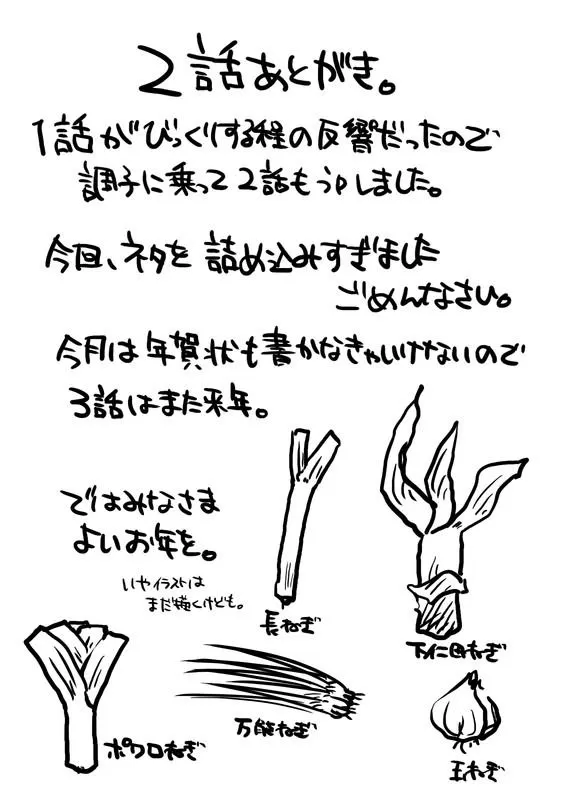 2話あとがき。
1話がびっくりする程の反響だったので
調子に乗って2話もうpしました。
今回、ネタを詰め込みすぎました
ごめんなさい。
今月は年賀状も書かなきゃいけないので
3話はまた来年。
ではみなさま
よいお年を。
いやイラストは
まだ描くけども。
長ねぎ
下仁田ねぎ
ポワロねぎ
万能ねぎ
玉ねぎ